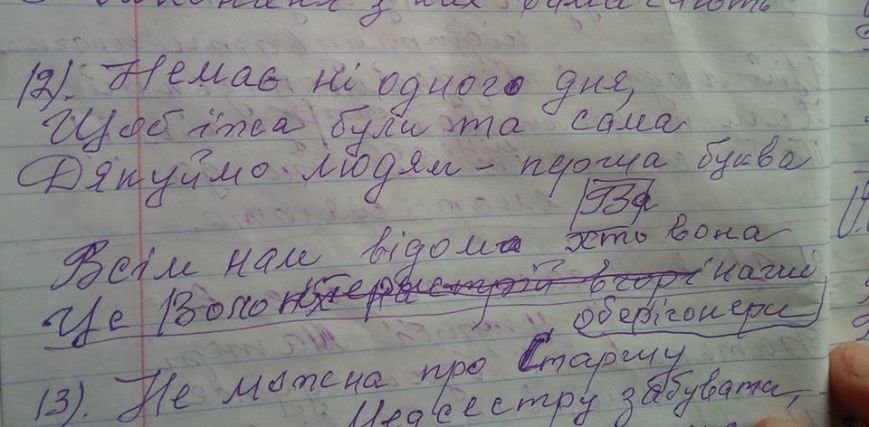 з них
12). Немає ні одного дня,
Щоб їжа були та сама
Дякуймо людям - перша буква
"Вз"
Всім нам відома хто вона
Це Воло наші
оберігонери
13). Не можна про Старшу
Медсестру забувати,